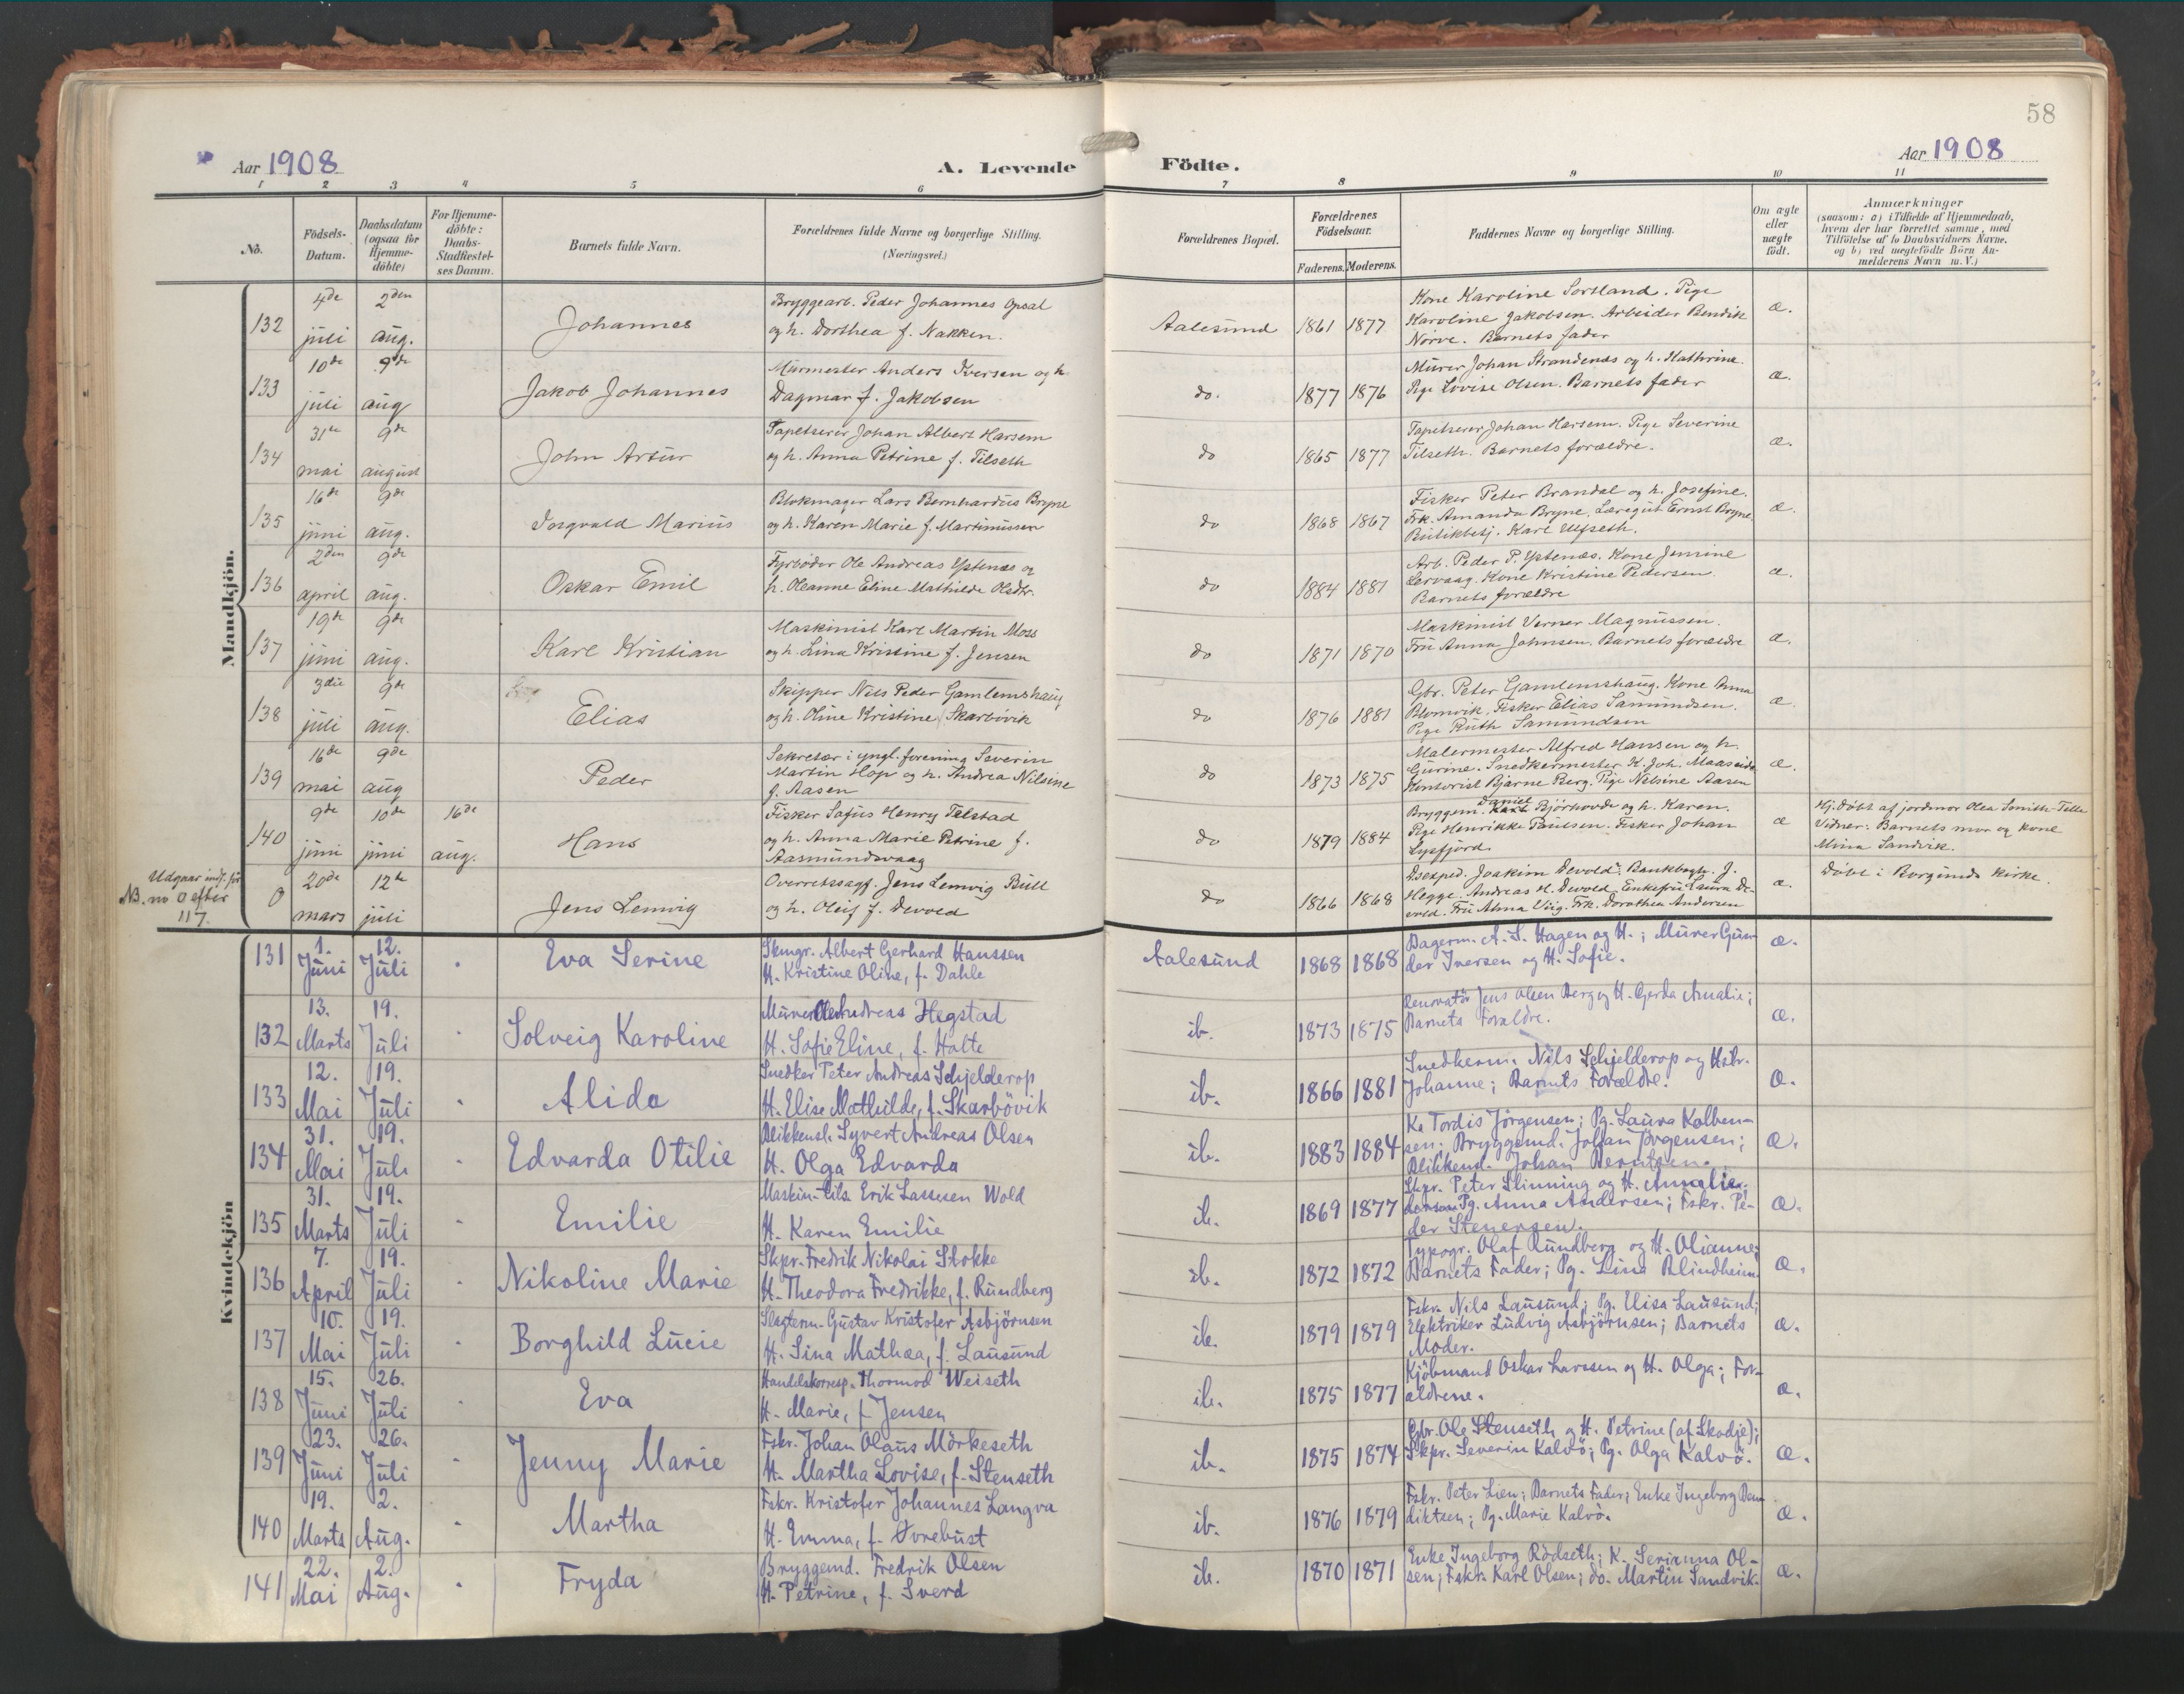 58
Aar 1908
A. Levende Födte.
Aar 1908
1 2 3 4 5 6 7 8 9 10 11
No.
Födsels-Datum.
Daabsdatum (ogsaa for Hjemme-döbte)
For Hjemme-döbte: Daabs-Stadfæstel-ses Datum.
Barnets fulde Navn.
Forældrenes fulde Navne og borgerlige Stilling.
(Næringsvei.)
Forældrenes Bopæl.
Forældrenes Födselsaar.
Faderens. Moderens.
Faddernes Navne og borgerlige Stilling.
Om ægte eller uægte födt.
Anmærkninger
(saasom: a) i Tilfælde af Hjemmedaab,
hvem der har forrettet samme, med
Tilföielse af to Daabsvidners Navne,
og b) ved uægtefödte Börn An-
melderens Navn m. V.)
Mandkjön.
132 4de juli 2den aug. Johannes
Bryggearb. Peder Johannes Opsal
og h. Dorthea f. Nakken.
Aalesund 1861 1877
Kone Karoline Sortland. Pige
Karoline Jakobsen. Arbeider Bendik
Nörve. Barnets fader
æ.
133 10de juli 9de aug Jakob Johannes
Murmester Anders Iversen og h.
Dagmar f. Jakobsen
do. 1877 1876
Murer Johan Strandenæs og h. Kathrine.
Pige Lovise Olsen. Barnets fader
æ.
134 31te mai 9de august John Artur
Tapetserer Johan Albert Harsem
og h. Anna Petrine f. Tilseth
do 1865 1877
Tapetserer Johan Harsem. Pige Severine
Tilseth. Barnets forældre.
æ.
135 16de juni 9de aug. Marius
Blokmager Lars Bernhardus Bryne
og h. Karen Marie f. Martinussen
do 1868 1867
Fisker Peter Brandal og h. Josefine.
Frk. Amanda Bryne. Læregut Ernst Bryne.
Butikbetj. Karl Ulfseth.
æ.
136 2den april 9de aug. Oskar Emil
Fyrböder Ole Andreas Ystenæs og
h. Oleanne Eline Mathilde Olsdtr.
do 1884 1881
Arb. Peder P. Ystenæs. Kone Jemine
Lervaag. Kone Kristine Pedersen.
Barnets forældre
æ.
137 19de juni 9de aug. Karl Kristian
Maskinist Karl Martin Moss
og h. Lina Kristine f. Jensen
do 1871 1870
Maskinist Verner Magnussen.
Fru Anna Johnsen. Barnets forældre
æ.
138 3die juli 9de aug. Elias
Skipper Nils Peder Gamlemshaug
og h. Oline Kristine Skarbövik
do 1876 1881
Gbr. Peter Gamlemshaug. Kone Anna
Blomvik. Fisker Elias Samundsen.
Pige Ruth Samundsen
æ.
139 16de mai 9de aug Peder
Sekretær i yngl. forening Severin
Martin Hop og h. Andrea Nilsine
f. Aasen
do 1873 1875
Malermester Alfred Hansen og h.
Gurine. Snedkermester K. Joh. Maaseide
Kontorist Bjarne Berg. Pige Nilsine Aasen
æ.
140 9de juni 10de juni 16de aug. Hans
Fisker Sofus Henry Telstad
og h. Anna Marie Petrine f.
Aasmundsvaag
do 1879 1884
Daniel
Bryggem. Björhovde og h. Karen.
Pige Henrikke Paulsen. Fisker Johan
Lysfjord.
æ
Hj. döbt af jordmor Olea Smith-Telle
Vidner: Barnets mor og kone
Mina Sandvik.
Udgaar indf. for
NB. no 0 efter
117.
0 20de mars 12te juli Jens Lemvig
Overretssagf. Jens Lemvig Bull
og h. f. Devold
do 1866 1868
Joakim Devold. Bankbogh. J.
Hegge. Andreas H. Devold. Enkefru Laura De-
vold. Fru Alma Viig. Frk. Dorothea Andersen
æ.
Döbt i Borgunds kirke.
Kvindekjön
131 1. Juni 12. Juli Eva Serine
Skmgr. Albert Gerhard Hanssen
H. Kristine Oline, f. Dahle
Aalesund 1868 1868
Dagarm. A. S. Hagen og H.; Murer Gun-
der Iversen og H. Sofie.
æ.
132 13. Marts 19. Juli Solveig Karoline
Murer Ole Andreas Hegstad
H. Sofie Eline, f. Holte
ib. 1873 1875
Renovatör Jens Olsen Berg og H. Gerda Amalie;
Barnets Forældre.
æ.
133 12. Mai 19. Juli Alida
Snedker Peter Andreas Schjelderop
H. Elise Mathilde, f. Skarbövik
ib. 1866 1881
Snedkerm. Nils Schjelderop og Hstr.
Johanne; Barnets Forældre.
æ.
134 31. Mai 19. Juli Edvarda Otilie
Blikkensl. Syvert Andreas Olsen
H. Olga Edvarda
ib. 1883 1884
K. Tordis Jörgensen; Pg. Laura Kolben-
sen; Bryggemd. Johan Jörgensen;
Blikkensl. Johan Berntsen.
æ.
135 31. Marts 19. Juli Emilie
Maskin-tils. Erik Lassesen Wold
H. Karen Emilie
ib. 1869 1877
Skpr. Peter Slinning og H. Annalie;
Pg. Anna Andersen; Fskr. Pe-
der Stenersen.
æ.
136 7. April 19. Juli Nikoline Marie
Skpr. Fredrik Nikolai Stokke
H. Theodora Fredrikke, f. Rundberg
ib. 1872 1872
Typogr. Olaf Rundberg og H. Olianne;
Barnets Fader; Pg. Lina Blindheim
æ.
137 10. Mai 19. Juli Borghild Lucie
Slagterm. Gustav Kristofer Asbjörnsen
H. Sina Mathea, f. Lausund
ib. 1879 1879
Fskr. Nils Lausund; Pg. Elisa Lausund;
Elektriker Ludvig Asbjörnsen; Barnets
Moder.
æ.
138 15. Juni 26. Juli Eva
Handelskorresp. Thormod Weiseth
H. Marie, f. Jensen
ib. 1875 1877
Kjöbmand Oskar Larssen og H. Olga; For-
ældrene.
æ.
139 23. Juni 26. Juli Jenny Marie
Fskr. Johan Olaus Mörkeseth
H. Martha Lovise, f. Stenseth
ib. 1875 1874
Gbr. Ole Stenseth og H. Petrine (af Skodje);
Skpr. Severin Kalvö; Pg. Olga Kalvö.
æ.
140 19. Marts 2. Aug. Martha
Fskr. Kristofer Johannes Langva
H. Emma, f. Övrebust
ib. 1876 1879
Fskr. Peter Lien; Barnets Fader; Enke Ingeborg Ben-
diktsen; Pg. Marie Kalvö.
æ.
141 22. Mai 2. Aug. Fryda
Bryggemd. Fredrik Olsen
H. Petrine, f. Sverd
ib. 1870 1871
Enke Ingeborg Rödseth; K. Serianna Ol-
sen; Fskr. Karl Olsen; do. Martin Sandvik.
æ.